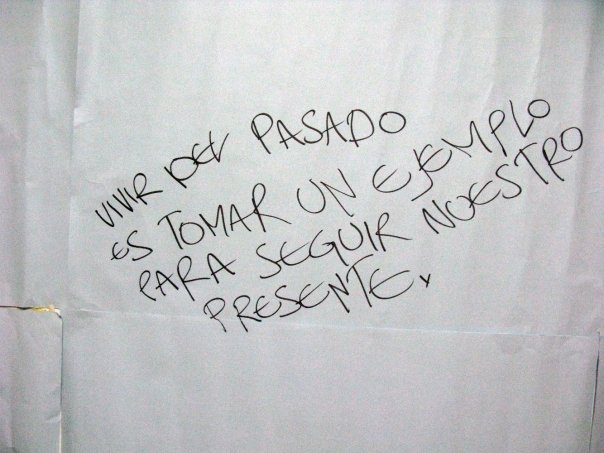 VIVIR DEL PASADO
ES TOMAR UN EJEMPLO
PARA SEGUIR NUESTRO
PRESENTE.